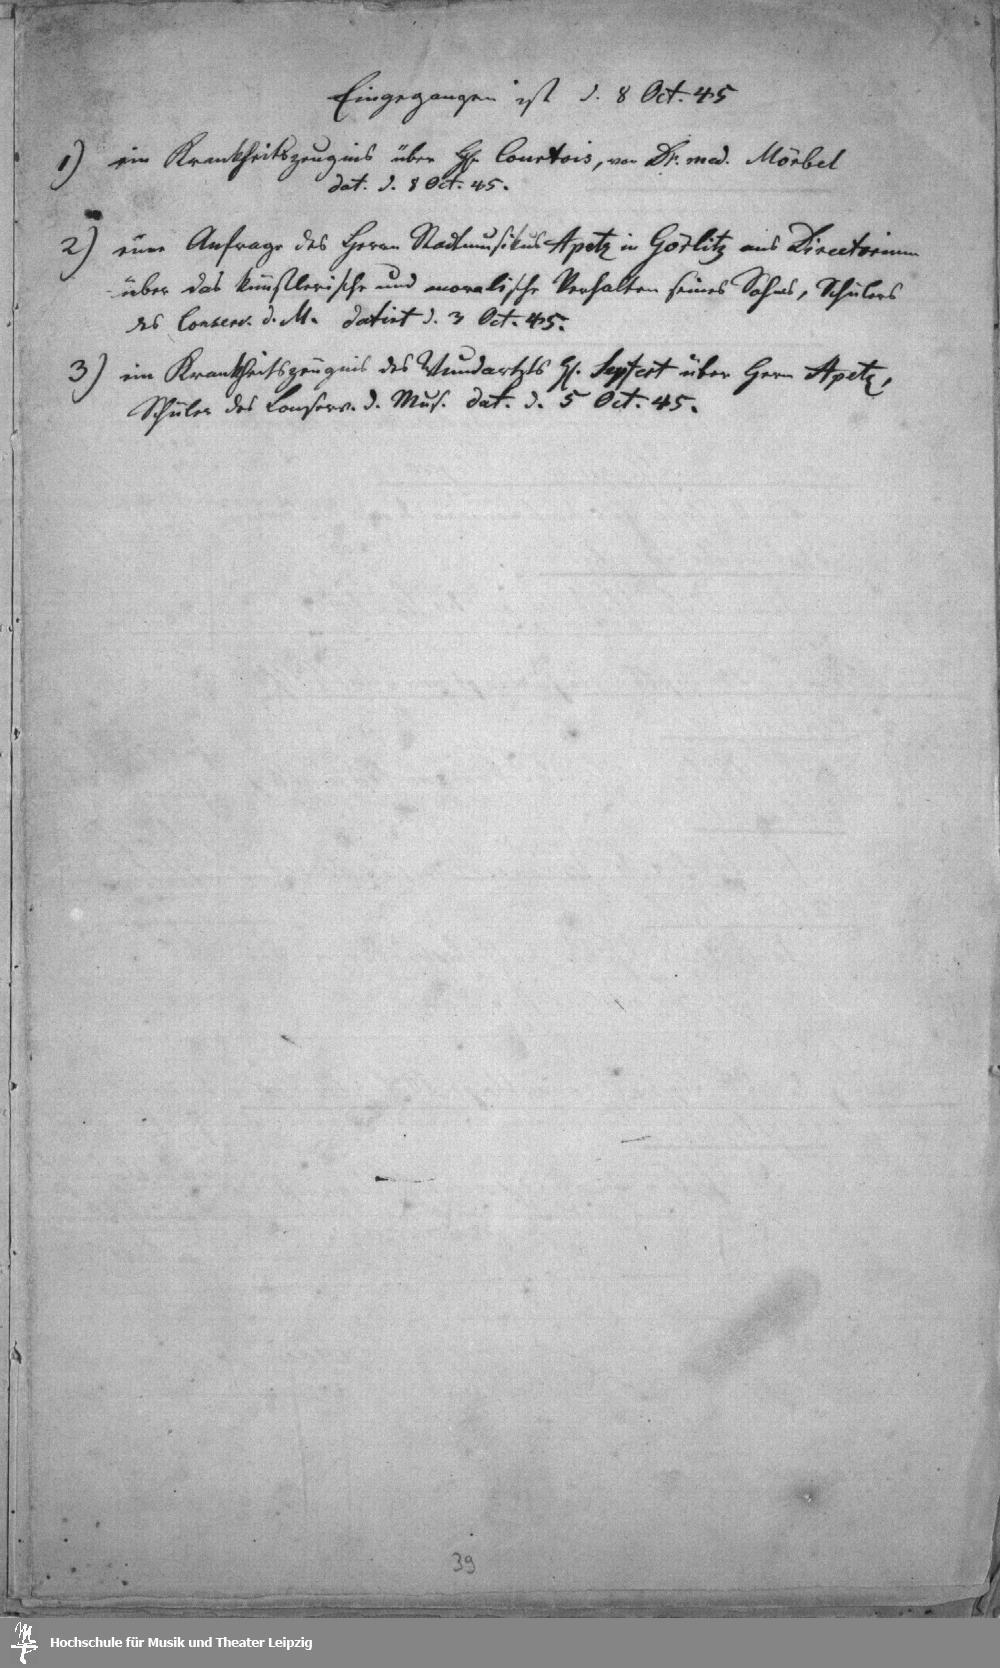 Eingegangen ist d. 8 Oct. 45
1) ein Krankheitszeugnis über Hr. Courtois, von Dr. med. Mörbel
dat. d. 8 Oct. 45.
2) eine Anfrage des Herrn Stadtmusikus Apetz in Görlitz ans Directorium
über das künstlerische und moralische Verhalten seines Sohnes, Schülers
des Conserv. d. M. datirt d. 3 Oct. 45.
3) ein Krankheitszeugnis des Wundartzts H. Seyfert über Herrn Apetz,
Schüler des Conserv. d. Mus. dat. d. 5 Oct. 45.
39
Hochschule für Musik und Theater Leipzig